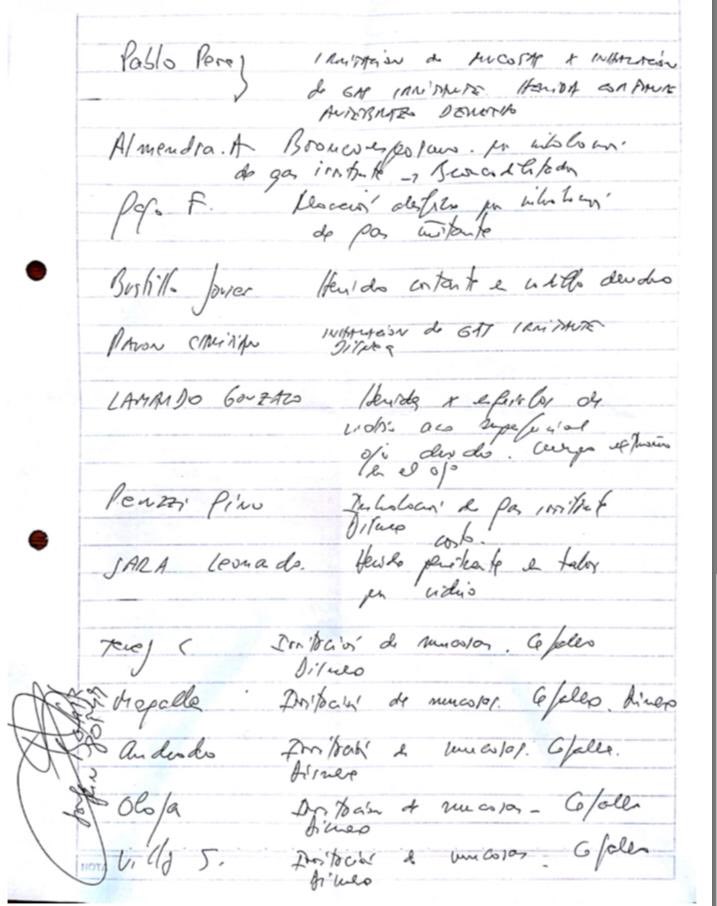 Pablo Perez IRRITACION de MUCOSAS X INHALACIÓN
de GAS IRRITANTE HERIDA CORTANTE
ANTEBRAZO DERECHO
Almendra. A Broncoespasmo. por inhalacion
de gas irritante → Broncodilatador
F. Reacción por inhalación
de gas irritante
Bustillo Javier Herida cortante e derecho
PAVON INHALACION de GAS IRRITANTE
DISNEA
LAMARDO GONZALO Herida x esquirlas de
vidrio superficial
ojo derecho. cuerpo extraño
en el ojo
Peruzzi Pino Inhalación de gas irritante
Disnea
SARA Leonardo. Herida penetrante en talon
por vidrio
C Irritación de mucosas. Cefalea
Disnea
Irritación de mucosas. Cefalea. Disnea
Andrada Irritación de mucosas. Cefalea.
Disnea
Irritación de mucosas - Cefalea
Disnea
S. Irritación de mucosas - Cefalea
Disnea
NOTA